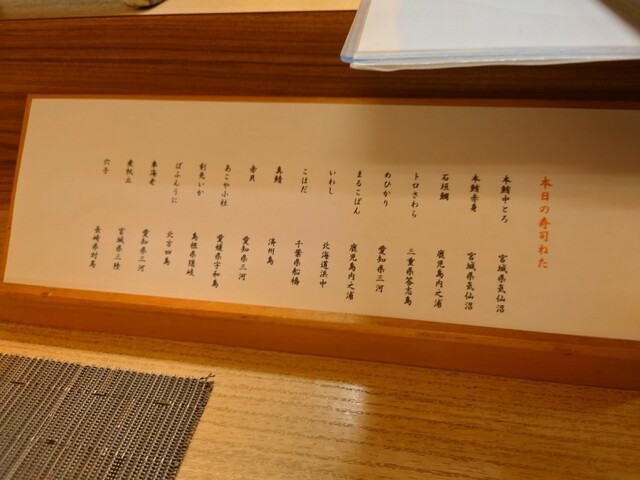 本日の寿司ねた
本鮪中とろ 宮城県気仙沼
本鮪赤身 宮城県気仙沼
石垣鯛 鹿児島内之浦
トロさわら 三重県答志島
めひかり 愛知県三河
まるこばん 鹿児島内之浦
いわし 北海道浜中
こはだ 千葉県船橋
真鯖 済州島
赤貝 愛知県三河
あこや小柱 愛媛県宇和島
剣先いか 島根県隠岐
ばふんうに 北方四島
車海老 愛知県三河
帆立 宮城県三陸
穴子 長崎県対馬